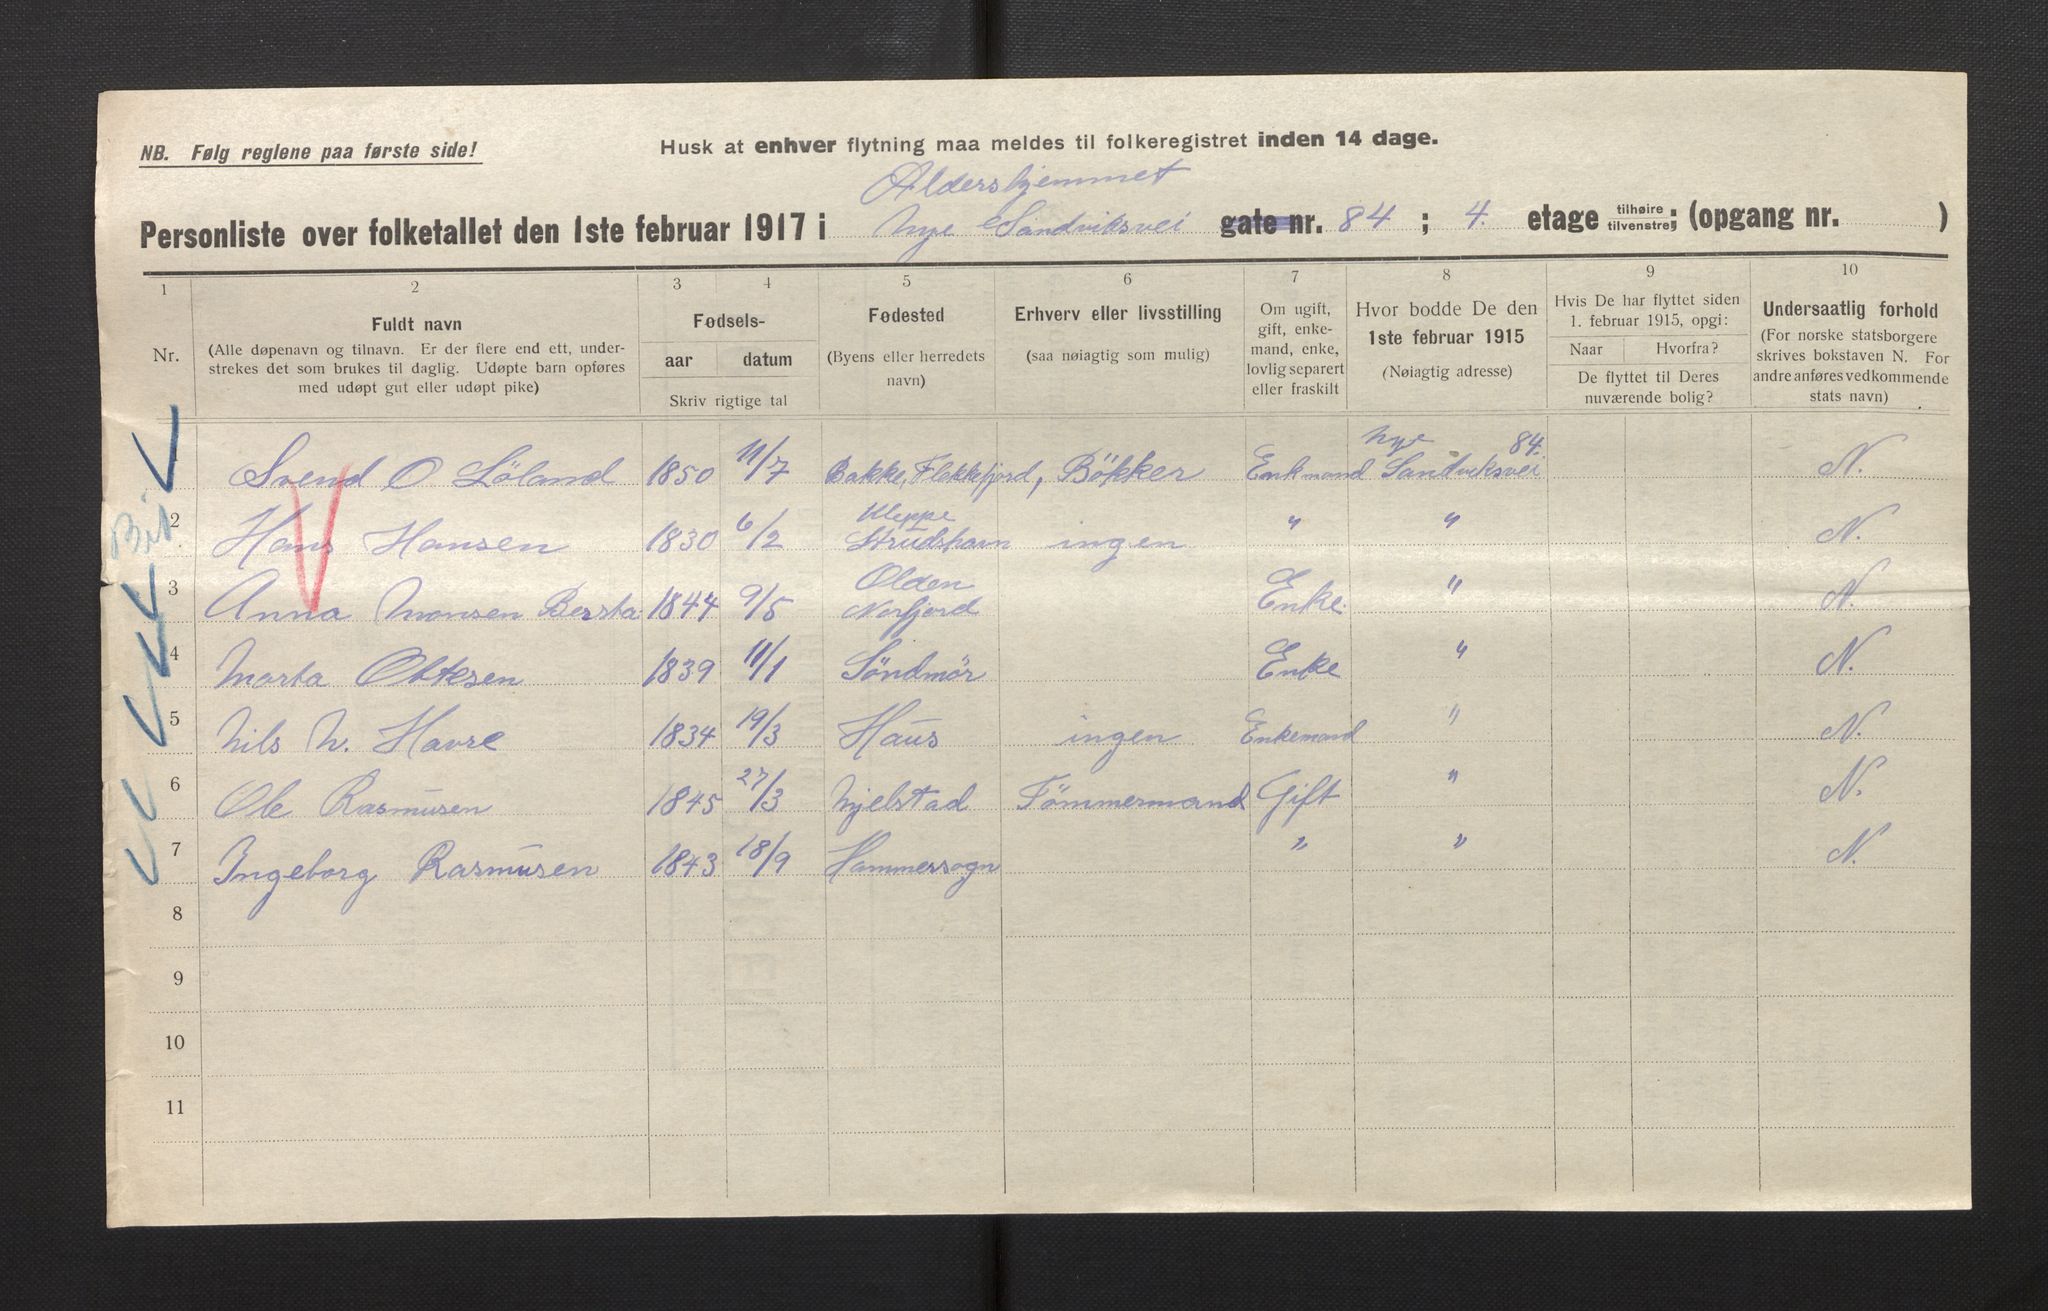 NB. Følg reglene paa første side!
Husk at enhver flytning maa meldes til folkeregistret inden 14 dage.
Aldershjemmet
Personliste over folketallet den 1ste februar 1917 i Nye Sandviksvei gate nr. 84 ; 4. etage tilhøire tilvenstre; (opgang nr. )
1 2 3 4 5 6 7 8 9 10
Nr.
Fuldt navn
(Alle døpenavn og tilnavn. Er der flere end ett, under-
strekes det som brukes til daglig. Udøpte barn opføres
med udøpt gut eller udøpt pike)
Fødsels-
aar datum
Skriv rigtige tal
Fødested
(Byens eller herredets
navn)
Erhverv eller livsstilling
(saa nøiagtig som mulig)
Om ugift,
gift, enke-
mand, enke,
lovlig separert
eller fraskilt
Hvor bodde De den
1ste februar 1915
(Nøiagtig adresse)
Hvis De har flyttet siden
1. februar 1915, opgi:
Naar Hvorfra?
De flyttet til Deres
nuværende bolig?
Undersaatlig forhold
(For norske statsborgere
skrives bokstaven N. For
andre anføres vedkommende
stats navn)
Nye 84.
Svend O Löland 1850 11/7 Bakke, Flekkefjord, Bökker Enkmand Sandviksvei N.
Kleppe
2 Hans Hansen 1830 6/2 Strudshavn ingen " " N.
Olden
3 Anna Monsen 1844 9/5 Norfjord Enke. " N.
4 Marta Ottesen 1839 11/1 Söndmör Enke " N.
5 Nils N. Havre 1834 19/3 Haus ingen Enkemand " N.
6 Ole Rasmusen 1845 27/3 Njelstad Tömmermand Gift " N.
7 Ingeborg Rasmusen 1843 18/9 Hammersogn " " N.
8
9
10
11